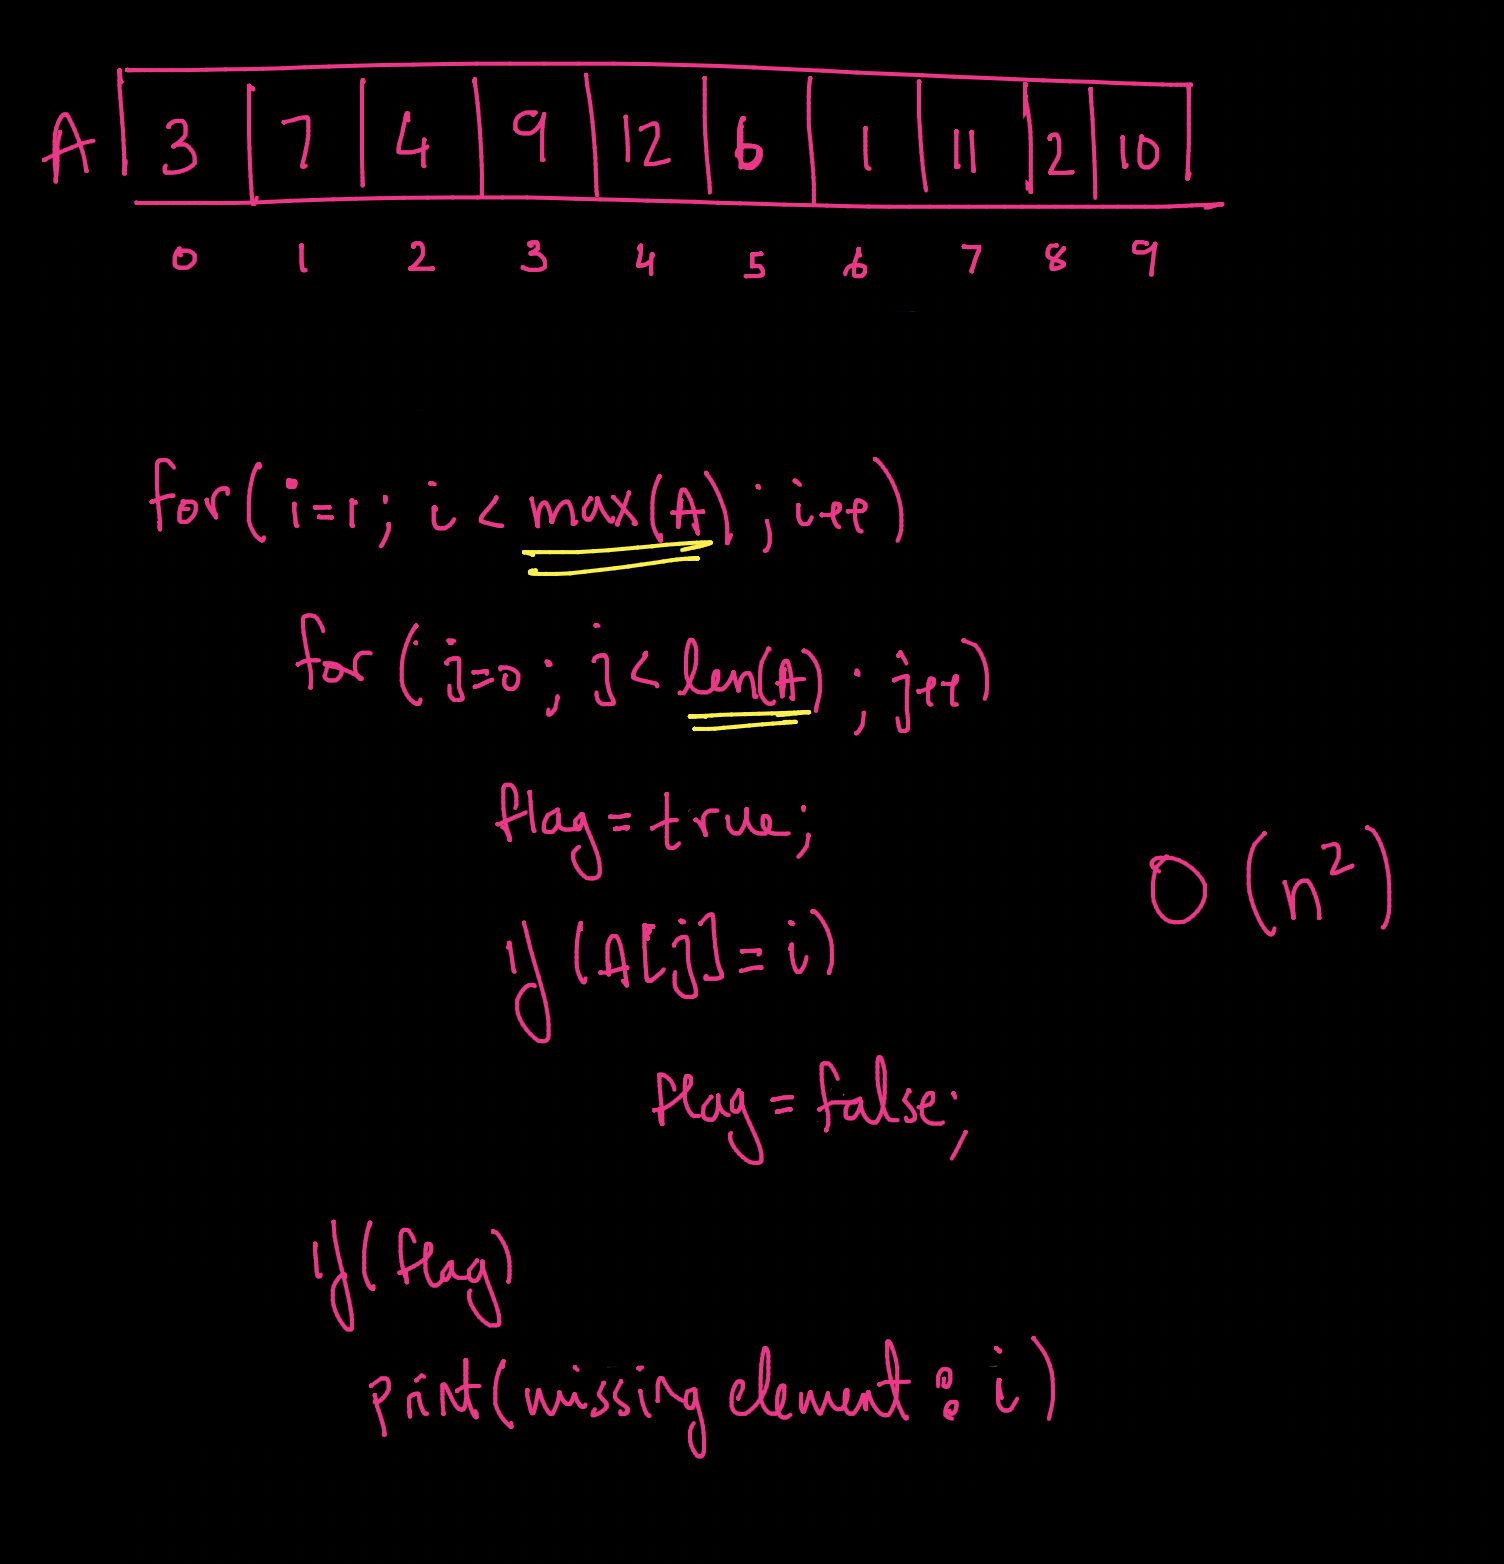 A 3 7 4 9 12 6 1 11 2 10
0 1 2 3 4 5 6 7 8 9
for(i=1; i<max(A); i++)
for(j=0; j<len(A); j++)
flag=true;
O(n²)
if(A[j]=i)
flag=false;
if(flag)
print(missing element : i)